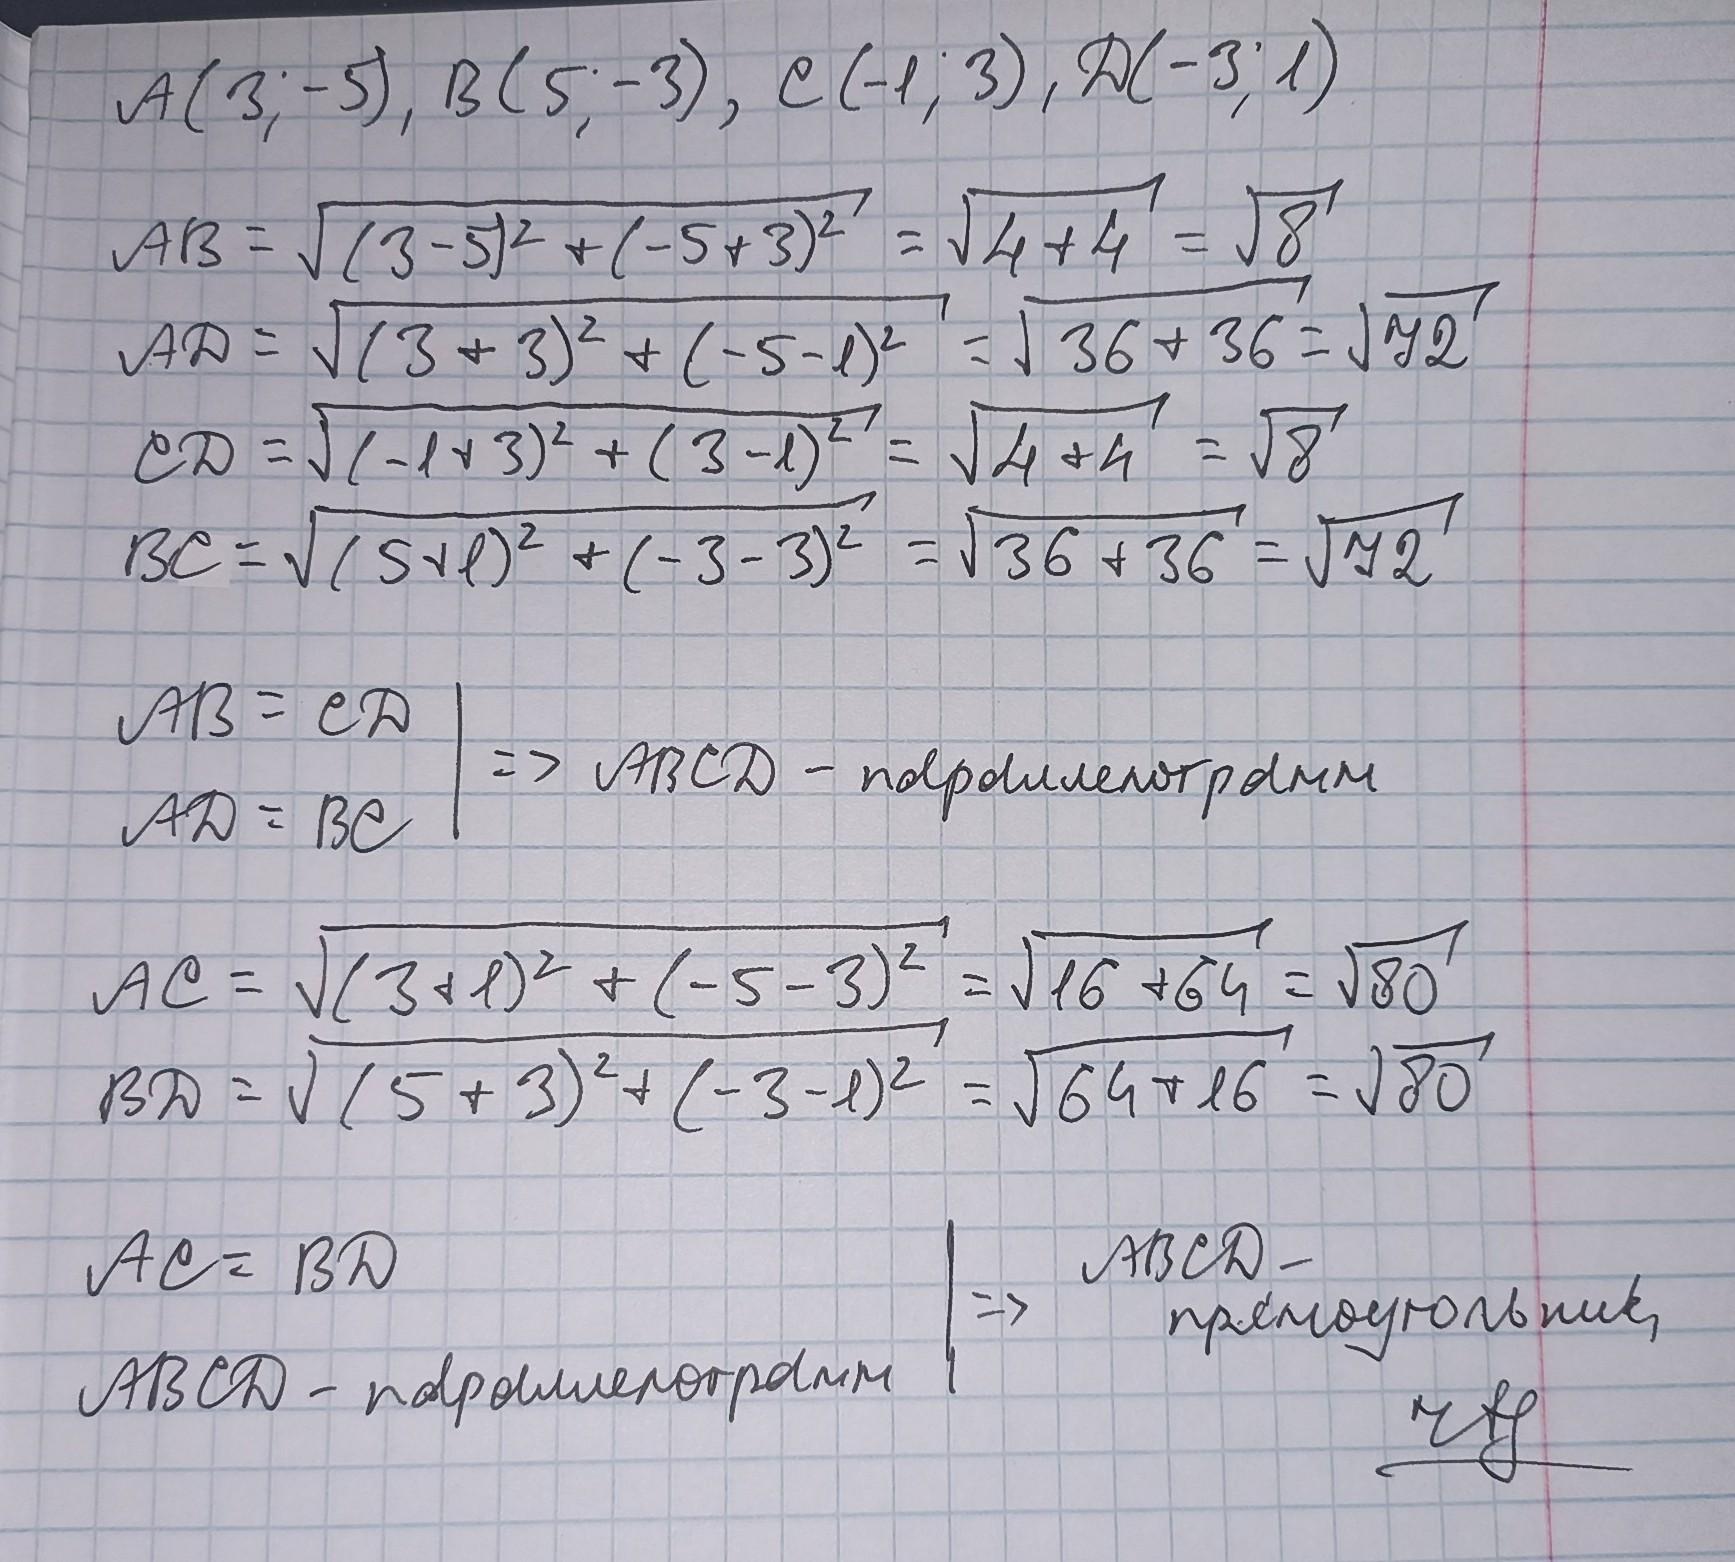 A(3;-5), B(5;-3), C(-1;3), D(-3;1)
AB = √((3-5)² + (-5+3)²) = √(4+4) = √8
AD = √((3+3)² + (-5-1)²) = √(36+36) = √72
CD = √((-1+3)² + (3-1)²) = √(4+4) = √8
BC = √((5+1)² + (-3-3)²) = √(36+36) = √72
AB = CD
AD = BC
=> ABCD - параллелограмм
AC = √((3+1)² + (-5-3)²) = √(16+64) = √80
BD = √((5+3)² + (-3-1)²) = √(64+16) = √80
AC = BD
ABCD - параллелограмм
=> ABCD -
прямоугольник,
чтд